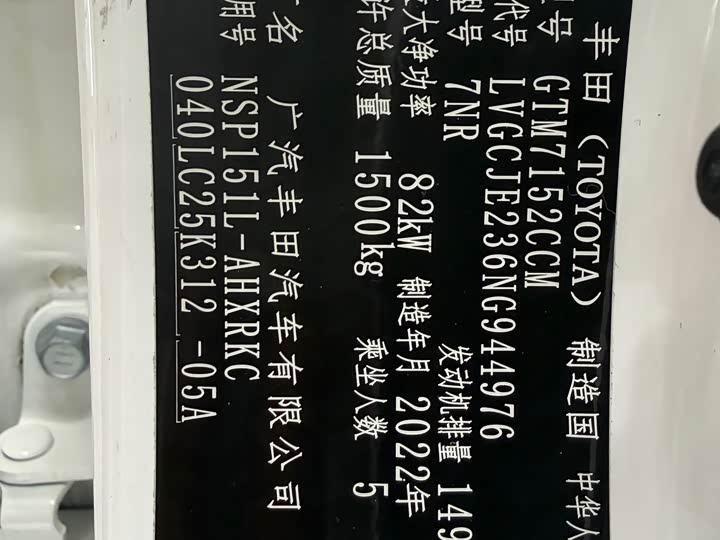 丰田 (TOYOTA) 制造国 中华人
号 GTM7152CCM
代号 LVGCJE236NG944976
型号 7NR 发动机排量 149
大净功率 82kW 制造年月 2022年
许总质量 1500kg 乘坐人数 5
名 广汽丰田汽车有限公司
NSP151L-AHXRKC
用号 040LC25K312 -05A